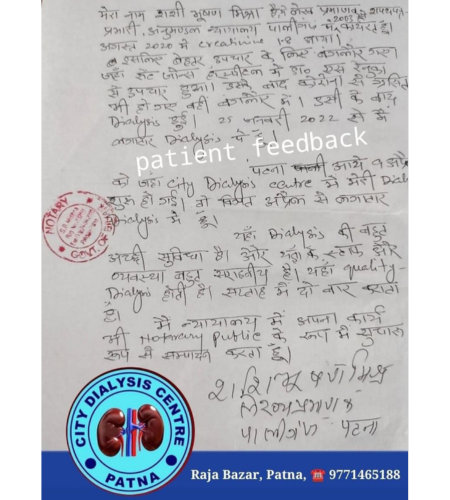 मेरा नाम शशी भूषण मिश्रा है मैं लेख प्रमाणक
2003 से
प्रभारी, अनुमण्डल न्यायालय पालीगंज में कार्यरत हूँ।
अगस्त 2020 में creatinine 1.8 आया।
इसलिए बेहतर उपचार के लिए बंगलोर गए
जहाँ सेंट जोन्स हॉस्पीटल में डा०
से उपचार हुआ। उसके बाद करोना से ग्रसित
भी हो गए वहीं बंगलोर में। उसी के बाद
Dialysis हुई। 25 जनवरी 2022 से मैं
लगातार Dialysis पे हूँ।
patient feedback
पटना आये 9 अप्रैल
को जहाँ City Dialysis centre में मेरी
शुरू हो गई। तो विगत अप्रैल से लगातार
Dialysis में हूँ।
यहाँ Dialysis की बहुत
अच्छी सुविधा है। और यहाँ के स्टाफ और
व्यवस्था बहुत सराहनीय है। यहाँ quality
Dialysis होती है। सप्ताह में दो बार कराता
हूँ।
मैं न्यायालय में अपना कार्य
भी Notary Public के रूप में सुचारू
रूप से सम्पादन करता हूँ।
NOTARY
GOVT. OF
शशि भूषण मिश्र
लेख्य प्रमाणक
पालीगंज पटना
CITY DIALYSIS CENTRE
PATNA
Raja Bazar, Patna, ☎ 9771465188